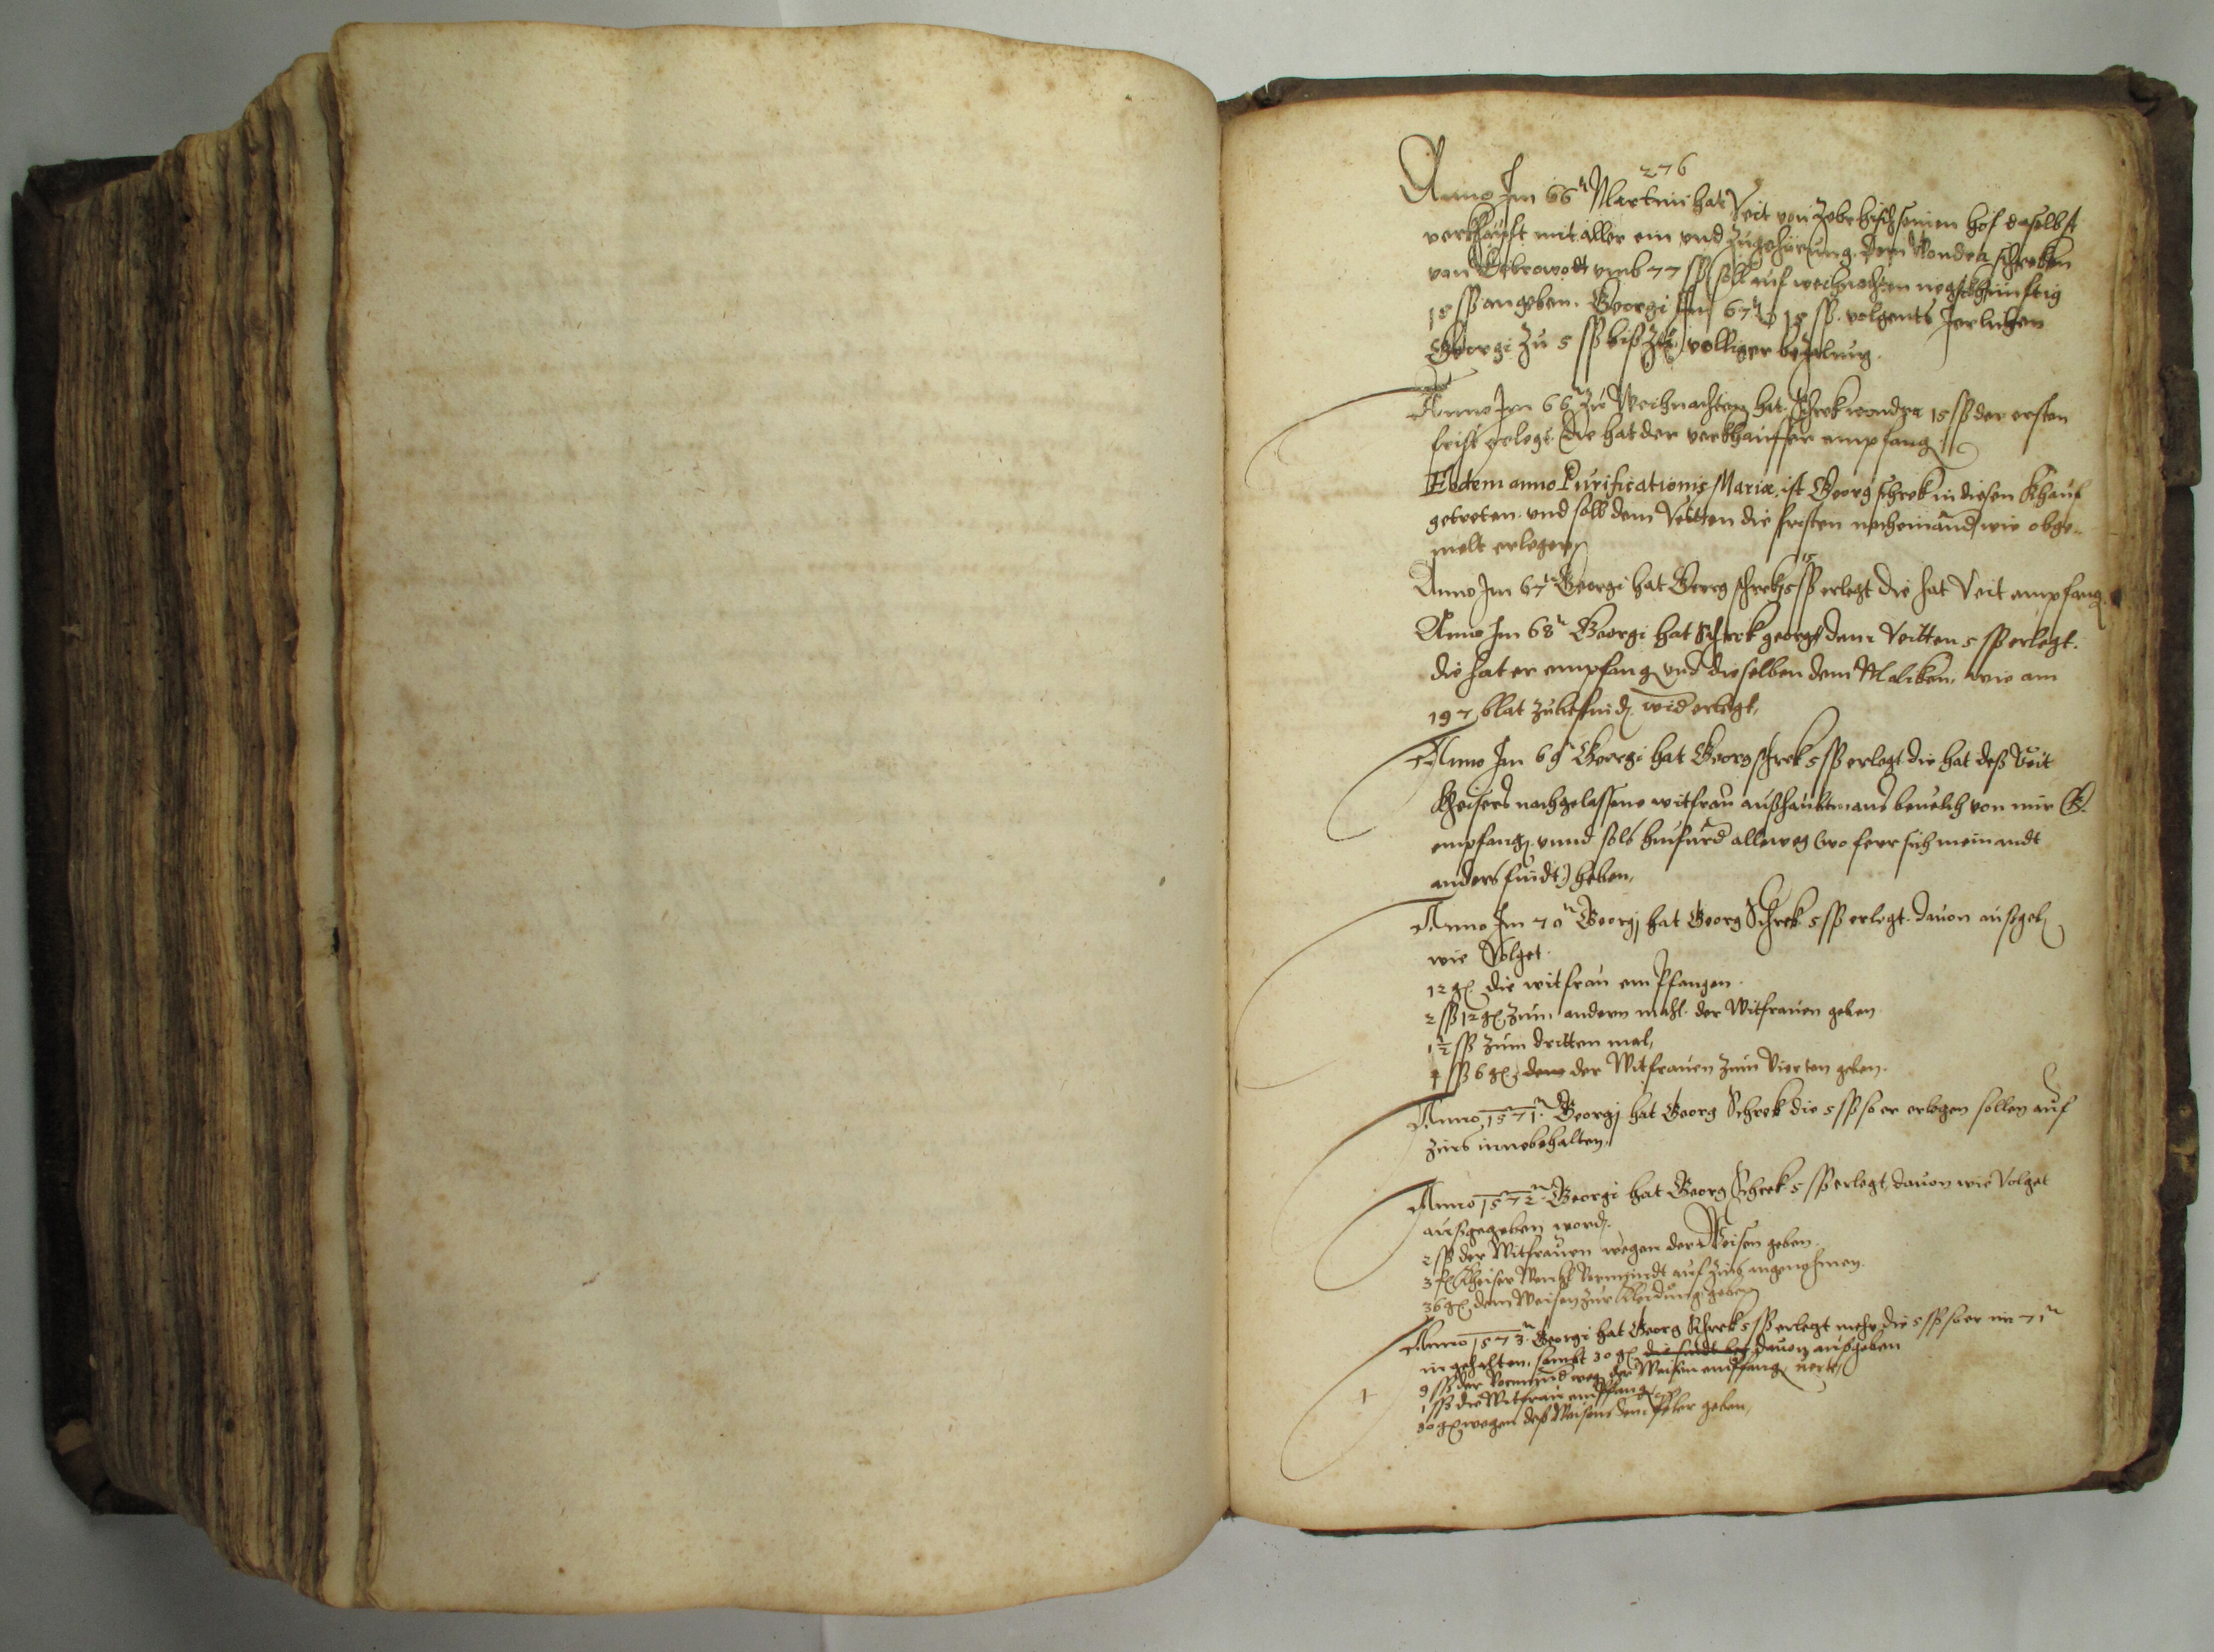 276
Anno Im 66ⁿ Martini hat Veit von seinen hof daselbst
verkhauft mit aller ein und Zugehörung. Dem Wondra schreken
von umb 77 sß soll auf weihnachten negstkhünftig
15 sß angeben. Georgi Im 67ⁿ 15 sß. volgents Jerlichen
Georgi Zu 5 sß biß Zu volliger bezalung.
Anno Im 66ⁿ Zu Weihnachten hat Schrek wondra 15 sß der ersten
frist erlegt. die hat der verkhauffer empfang.
Eodem anno Purificationis Mariæ, ist Georg schrek in diesen Khauf
getreten. und soll dem Veitten die fristen nacheinand wie obge-
melt erlegen
Anno Im 67ⁿ Georgi hat Georg schrek 15 sß erlegt die hat Veit empfang.
Anno Im 68ⁿ Georgi hat Schrek georg dem Veitten 5 sß erlegt.
die hat er empfang und dieselben dem Maliken, wie am
197 blat zubefind. wid erlegt,
Anno Im 69ⁿ Georgi hat Georg schrek 5 sß erlegt die hat deß Veit
Kheisers nachgelassene witfrau auß haubtmans beuelch von mir
empfang. unnd sols hinfurd alleweg (wo ferr sich niemandt
anders findt) heben,
Anno Im 70ⁿ Georgj hat Georg Schrek 5 sß erlegt. dauon außgeb
wie Volget.
12 gr. die witfrau empfangen.
2 sß 12 gr. zum andern mahl. der Witfrauen geben
1½ sß zum dritten mal,
sß 6 gr. dem der Witfrauen zum Vierten geben.
Anno 1571ⁿ. Georgj hat Georg Schrek die 5 sß so er erlegen sollen auf
zins innebehalten.
Anno 1572ⁿ. Georgi hat Georg Schrek 5 sß erlegt, dauon wie Volget
ausgegeben word.
2 sß der Witfrauen wegen der Weisen geben.
3 fl Kheiser Vormundt auf zins angenohmen.
36 gr. dem Weisen zur Kleidung geben
Anno 1573ⁿ. Georgi hat Georg Schrek 5 sß erlegt mehr die 5 sß so er im 71ⁿ
ingehalten, sambt 30 gr. dauon außgeben
9 sß der Vormund weg. der Weisen empfang
1 sß die Witfrau empfang
30 gr wegen deß Weisens dem geben,